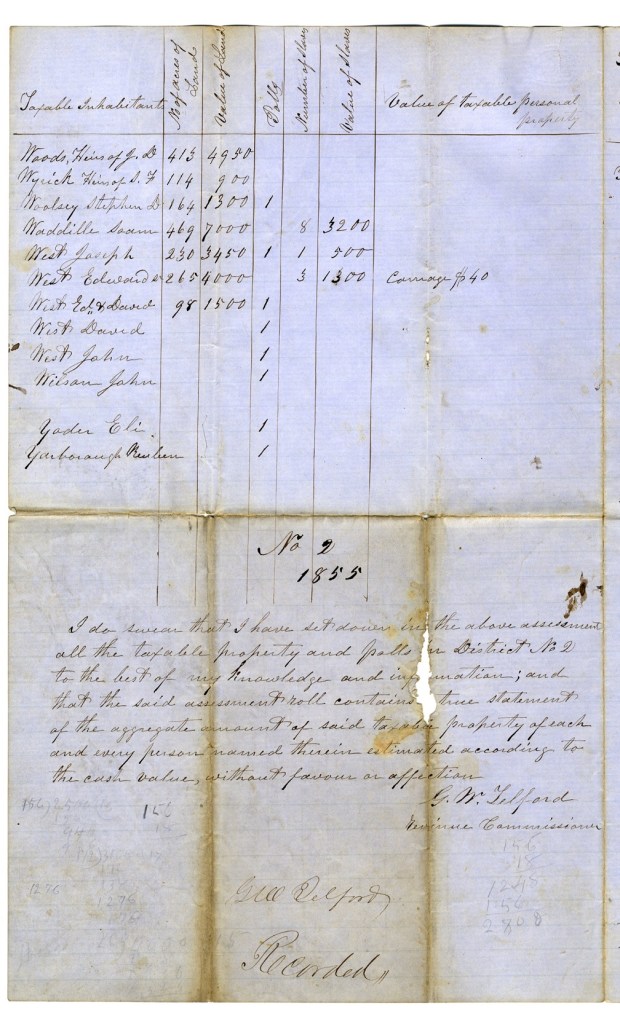 Taxable Inhabitants
No of acres of Lands
Value of Land
Polls
Number of Slaves
Value of Slaves
Value of taxables personal property
Woods, Heirs of G. D 413 4950
Wyrick Heirs of S. F 114 900
Woolsey Stephen D 164 1300 1
Waddille Soam 469 7000 8 3200
West Joseph 230 3450 1 1 500
West Edward 265 4000 3 1300 Carriage $40
West Ed. & David 98 1500 1
West David 1
West John 1
Wilson John 1
Yoder Eli. 1
Yarborough Reuben 1
No 2
1855
I do swear that I have set down in the above assessment
all the taxable property and polls in District No 2
to the best of my knowledge and information; and
that the said assessment roll contains true statement
of the aggregate amount of said taxable property of each
and every person named therein estimated according to
the cash value, without favour or affection
G. W. Telford
Revinue Commissioner
156
156
1248
156
2808
1276
1276
G W Telford
Recorded